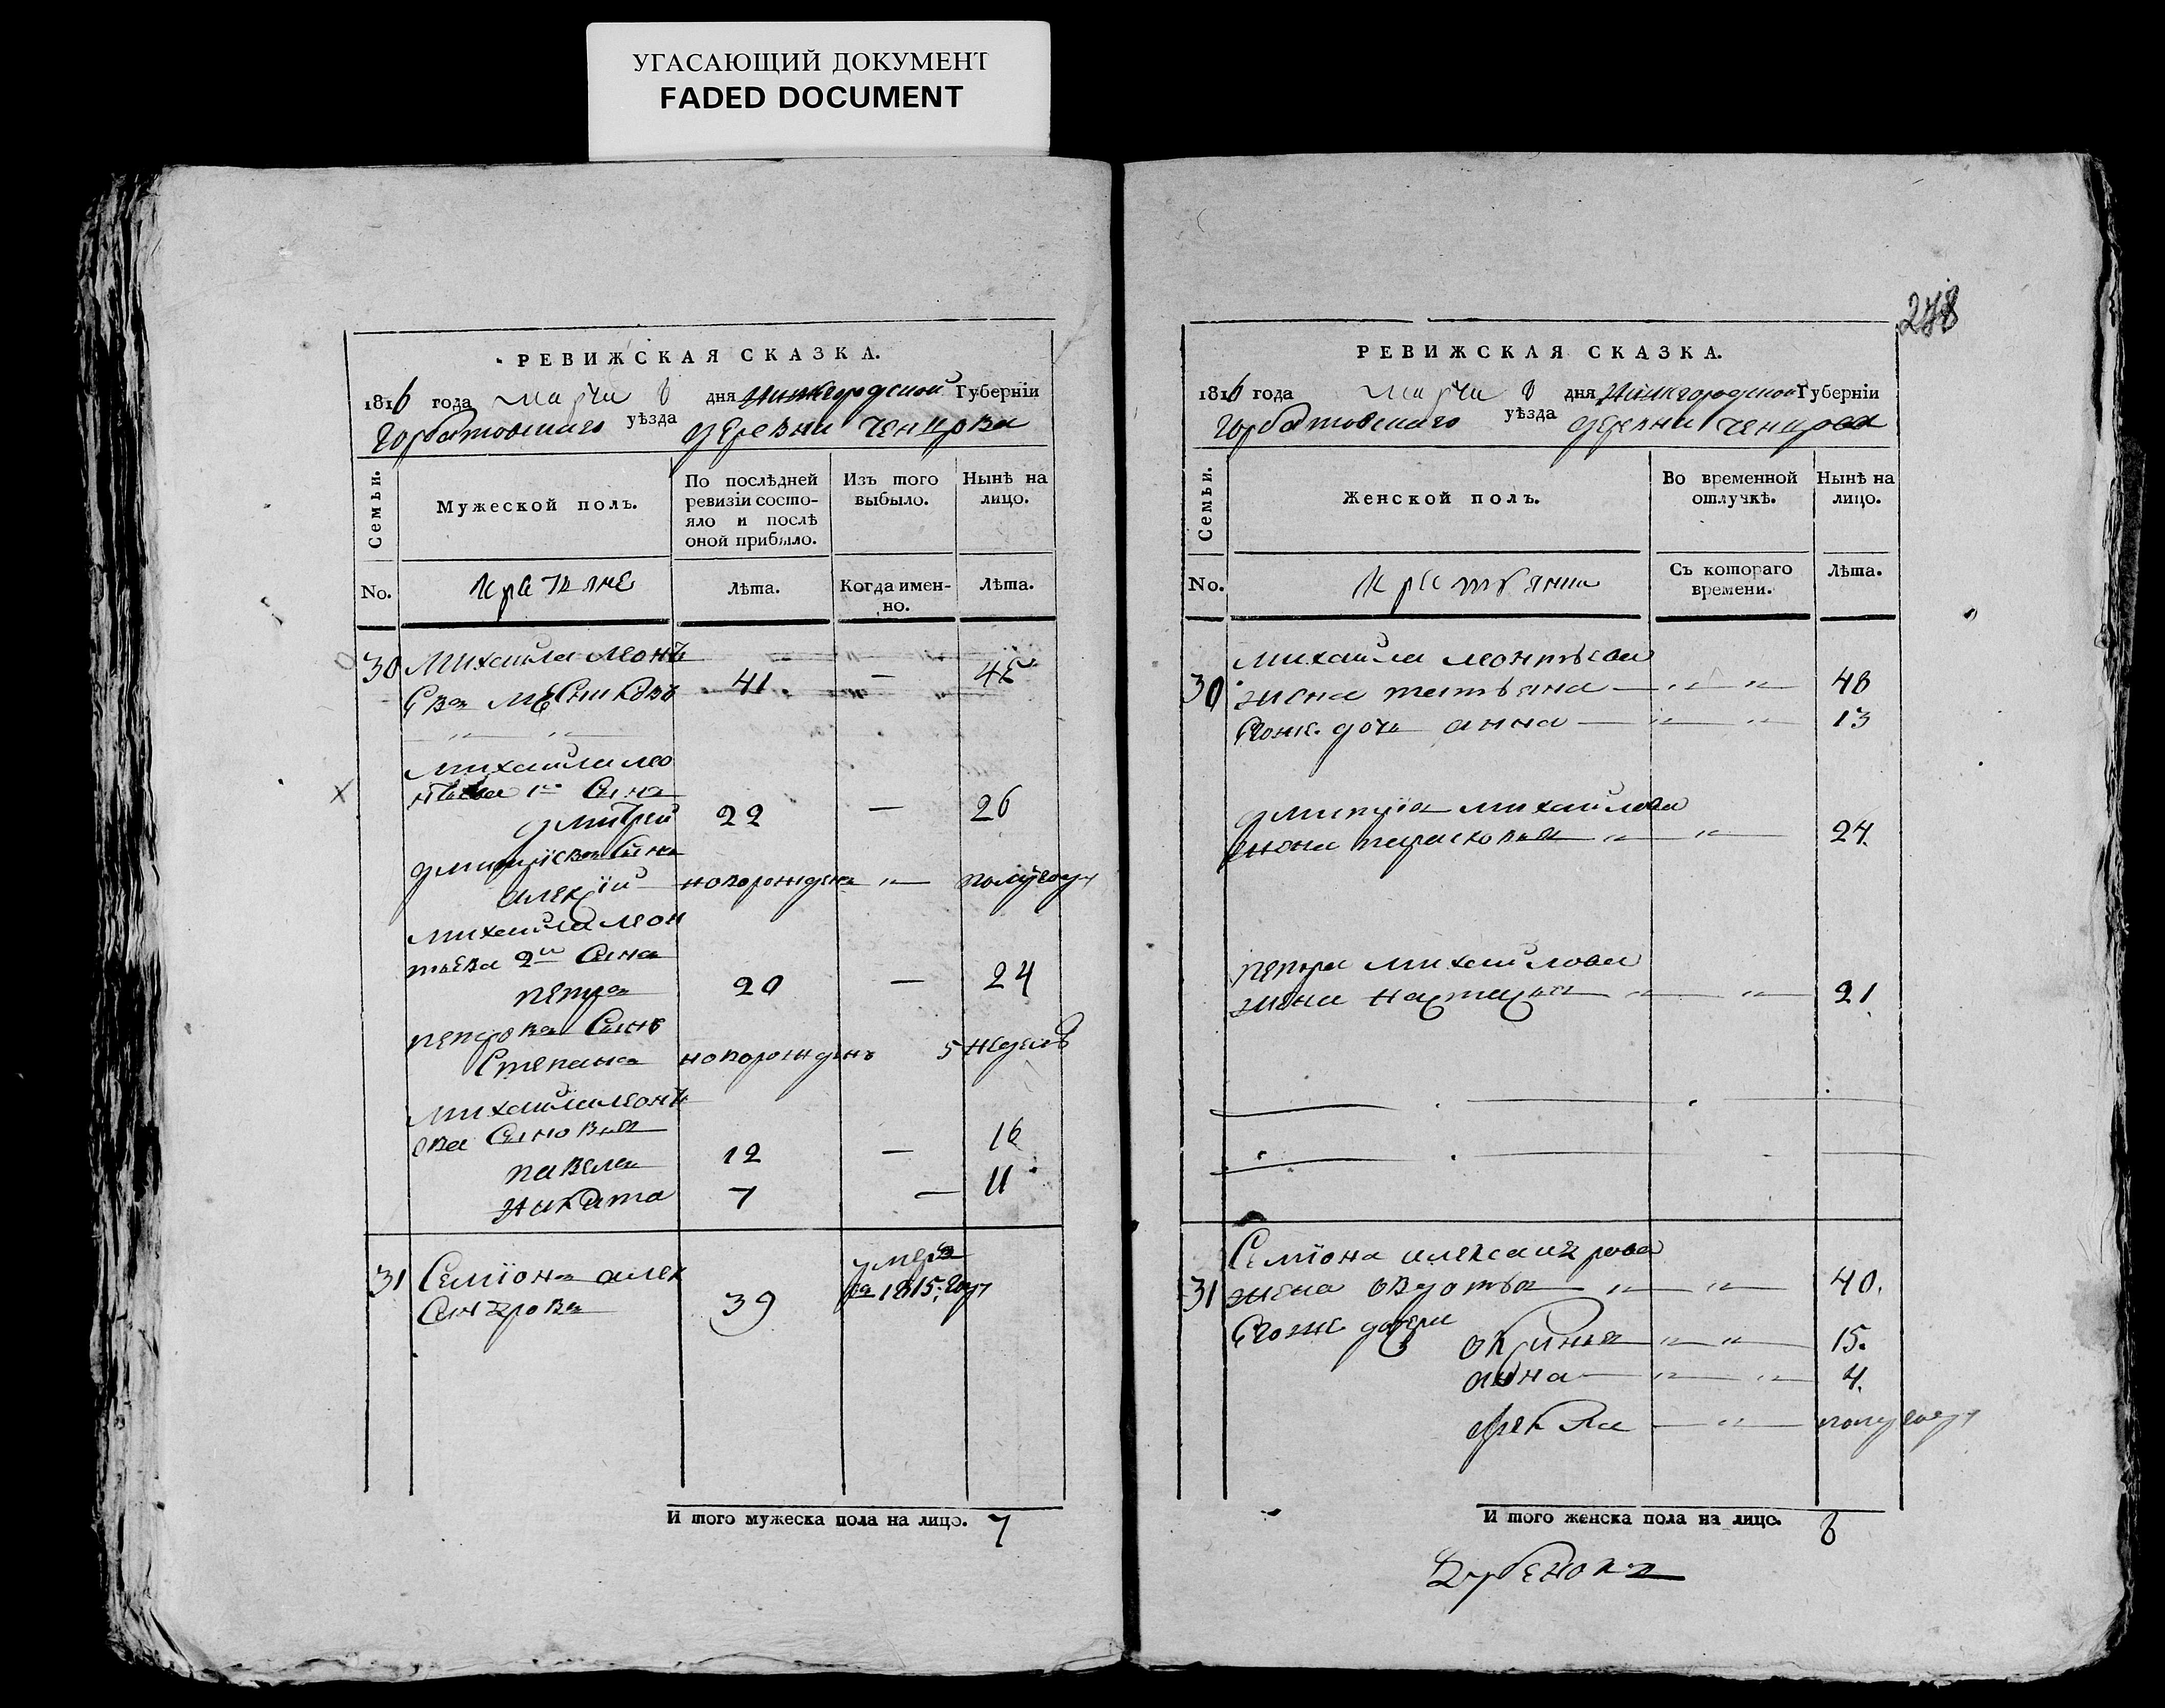 УГАСАЮЩИЙ ДОКУМЕНТ
FADED DOCUMENT
РЕВИЖСКАЯ СКАЗКА.
1816 года марта 8 дня Нижегородской Губерніи
Горбатовскаго уѣзда деревни
Семьи.
Мужеской полъ.
По послѣдней ревизіи состо-
яло и послѣ
оной прибыло.
Изъ того
выбыло.
Нынѣ на
лицо.
No.
лѣта.
Когда имен-
но.
лѣта.
30 Михаила Леонть
евъ 41 —
Михаила Лео
нтьева 1й сынъ
Дмитрей 22 — 26
Дмитріевъ сынъ
Алексій новорожденъ " — полугоду
Михаила Леон
тьева 2й сынъ
Петръ 20 — 24
Петровъ сынъ
Степанъ новорожденъ 5 недель
Михаила Леонть
ева сыновья
Павелъ 12 — 16
Никита 7 — 11
31 Семіонъ Алек
сандровъ 39 умеръ
въ 1815: году
И того мужеска пола на лицо. 7
278
РЕВИЖСКАЯ СКАЗКА.
1816 года марта 8 дня Нижегородской Губерніи
Горбатовскаго уѣзда деревни
Семьи.
Женской полъ.
Во временной
отлучкѣ.
Нынѣ на
лицо.
No.
Съ котораго
времени.
лѣта.
30 Михаила Леонтьева
жена Татьяна — " — " — 48
его же дочь Анна — " — " — 13
Дмитрія Михайлова
жена Парасковья — " — " — 24.
Петра Михайлова
жена Настасья — " — " — 21.
31 Семіона Александрова
жена Овдотья — " — " — 40.
его же дочери
— " — " — 15.
Анна — " — " — 4.
Фекла — " — полугоду
И того женска пола на лицо. 8